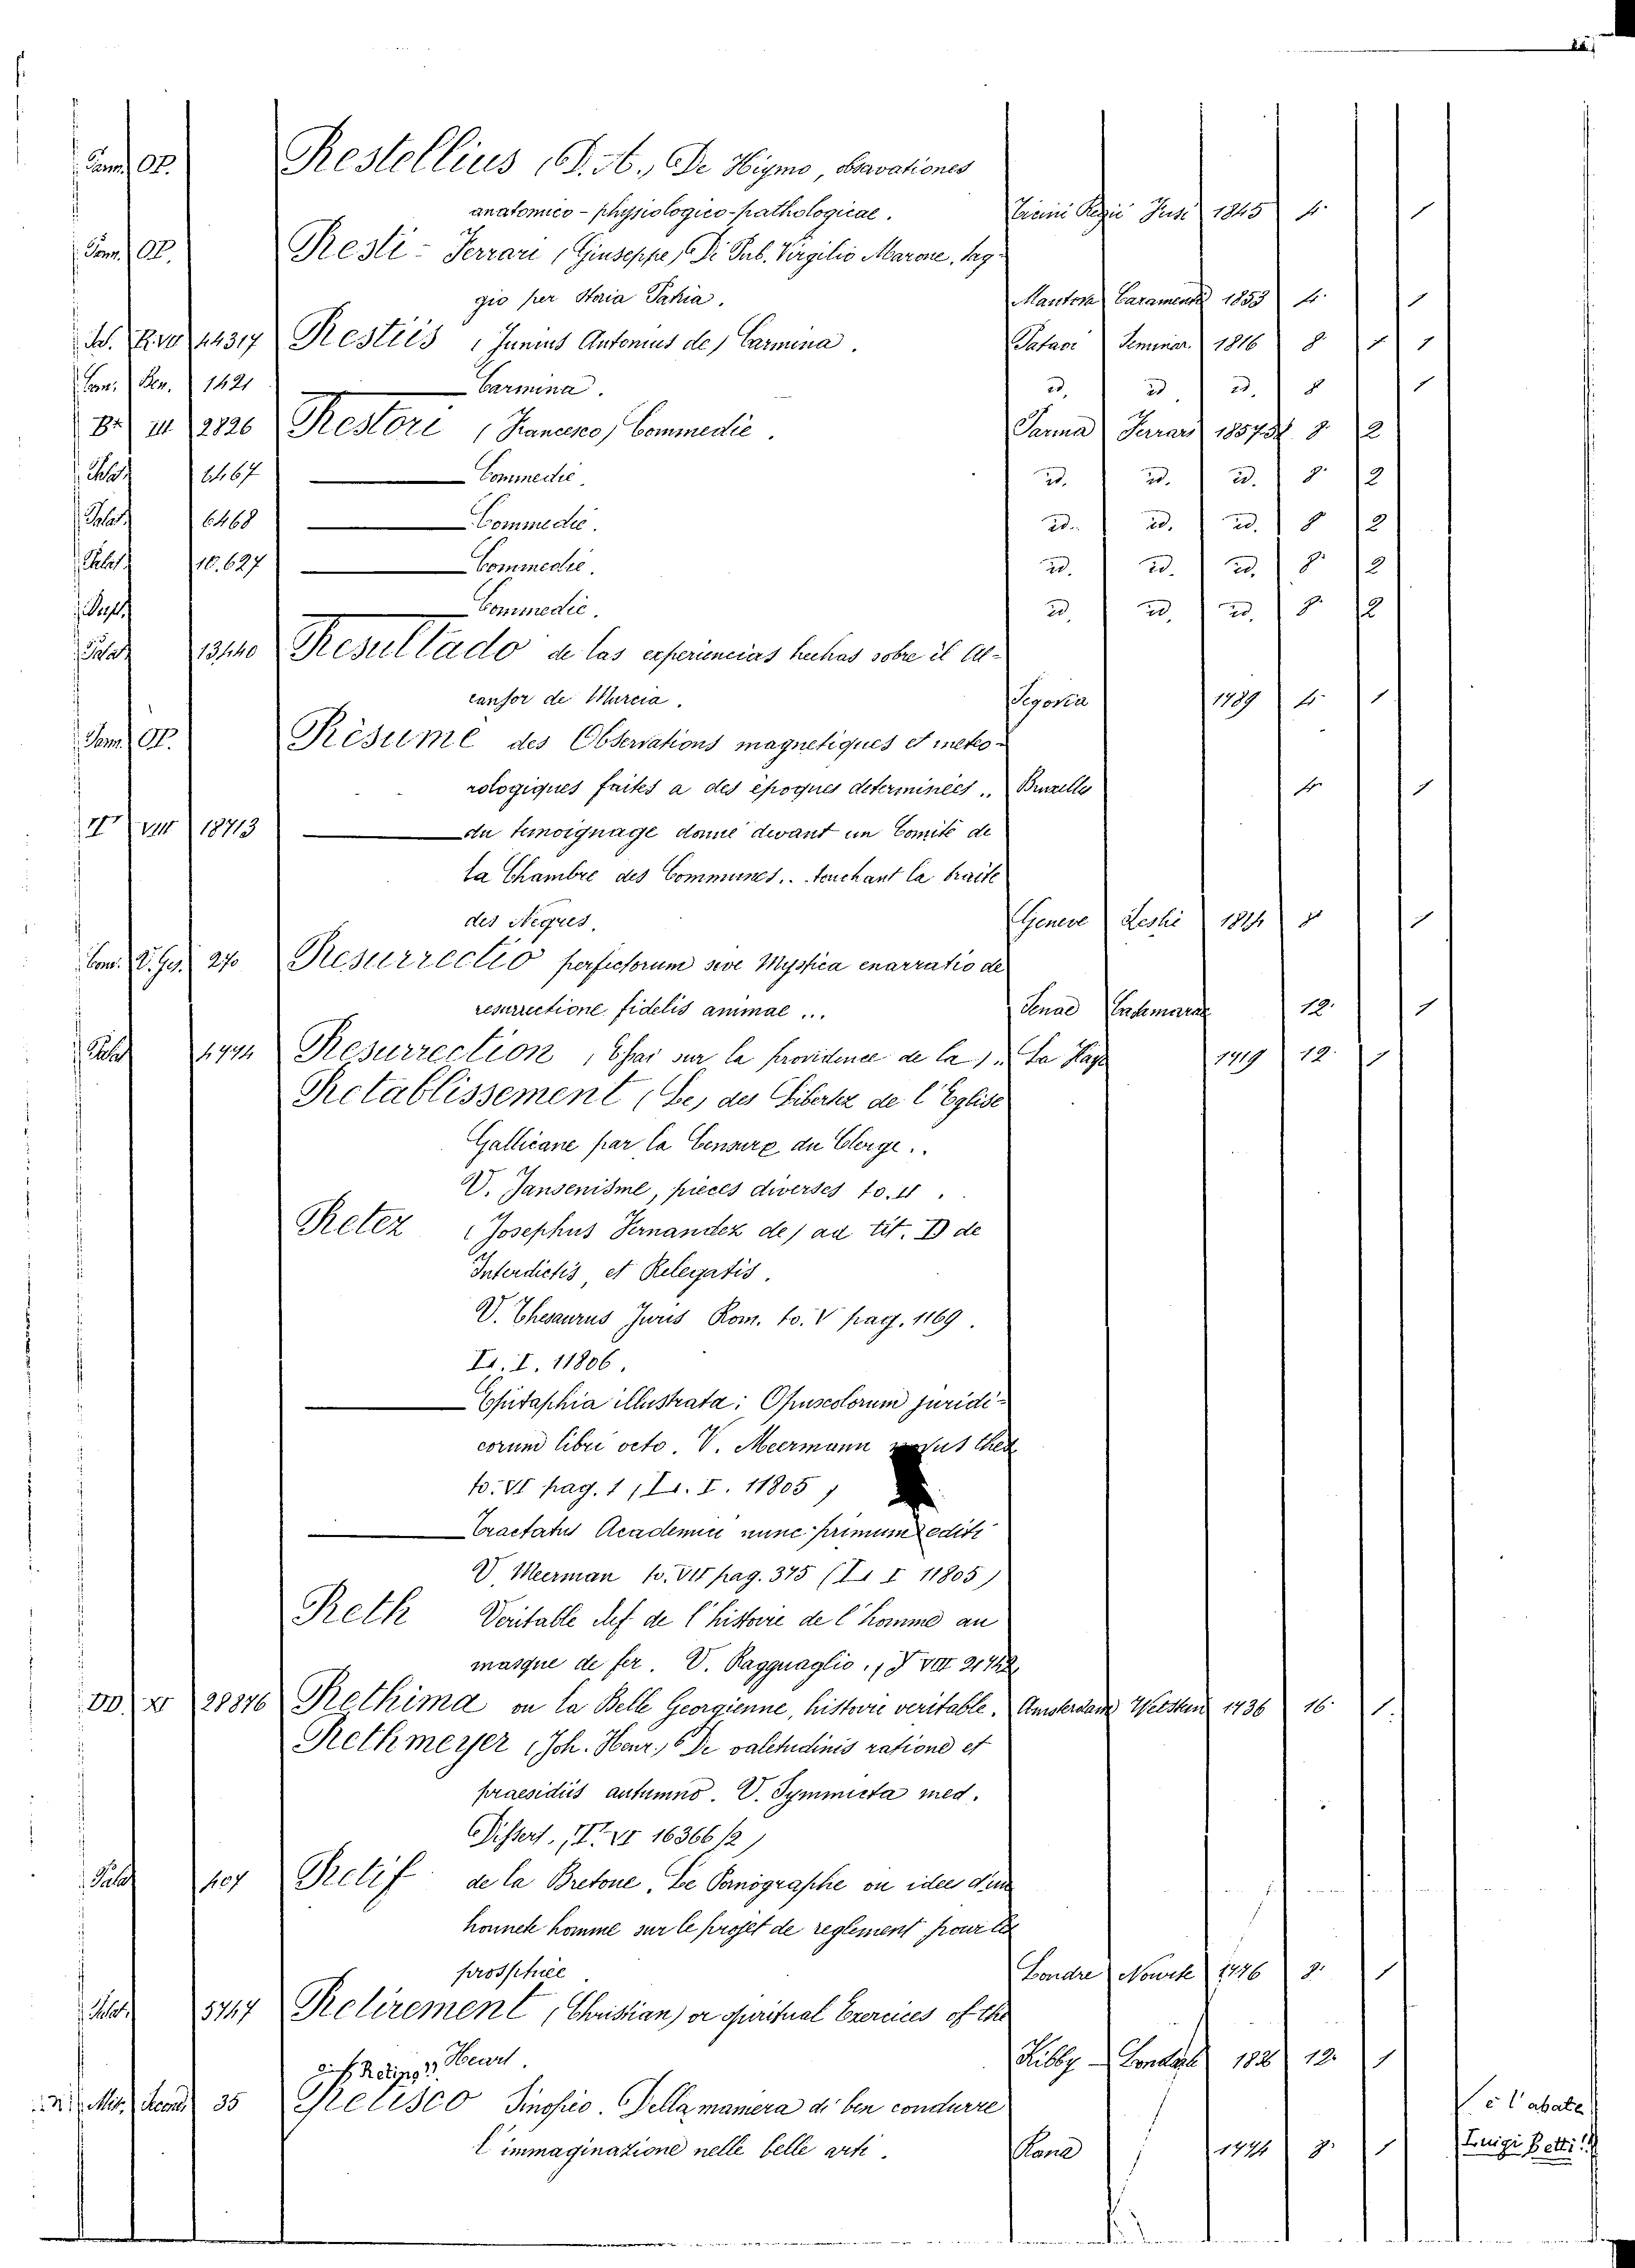 Restellius, P. A., De Higmo, observationes
anatomico-physiologico-pathologicae. Ticini Regii Fusi 1845 4. 1
Resti-Ferrari (Giuseppe) Di Pub. Virgilio Marone, Sag-
gio per Storia Patria. Mantova Caramenti 1853 4. 1
14317 Restiis (Junius Antonius de) Carmina. Patavi Seminar. 1816 8 1 1
Com. Ben. 1421 Carmina. id. id. id. 8 1
Br III 2826 Restori (Francesco) Commedie. Parma Ferrari 1857 8. 2
Palat. 6467 Commedie. id. id. id. 8. 2
Palat. 6468 Commedie. id. id. id. 8 2
Palat. 10.627 Commedie. id. id. id. 8. 2
Commedie. id. id. id. 8. 2
Palat. 13440 Resultado de las experiencias hechas sobre il al-
canfor de Murcia. Segovia 1789 4. 1
Résumé des Observations magnetiques et meteo-
rologiques faites a des époques determinées.. Bruxelles 4. 1
VIII 18713 du temoignage donné devant un Comité de
la Chambre des Communes.. touchant la traite
des Negres. Geneve 1814 8 1
Com. V. Ges. 270 Resurrectio perfectorum sive Mystica enarratio de
resurrectione fidelis animae ... 12. 1
Palat. Resurrection, Essai sur la providence de la) .. La Haye 1719 12. 1
Retablissement (Le) des Libertez de l'Eglise
Gallicane par la Censure du Clergé..
V. Jansenisme, pieces diverses to. 11.
Retez (Josephus Fernandez de) ad tit. D de
Interdictis et Relegatis.
V. Thesaurus Juris Rom. to. V pag. 1169.
LL. I. 11806.
Epitaphia illustrata; Opuscolorum juridi-
corum libri octo. V. Meermann novus thes
to. VI pag. 1 (LL. I. 11805)
Tractatus Academici nunc primum editi
V. Meerman to. VII pag. 375 (LL I 11805)
Reth Veritable clef de l'histoire de l'homme au
masque de fer. V. Ragguaglio.
DD. XI 28876 Rethima ou la Belle Georgienne, histoire veritable. Amsterdam 1736 16. 1.
Rethmeyer (Joh. Henr.) De valetudinis ratione et
praesidiis autumno. V. Symmicta med.
Dissert. (T. VI 16366/2)
Palat. Retif de la Bretone. Le Pornographe ou idee d'un
honnete homme sur le projet de reglement pour les
prostituée Londre 1776 8. 1
Palat. 5747 Retirement (Christian) or spiritual Exercices of the
Heart. Kibby London 12. 1
di Retino??
35 Retisco Sinopio. Della maniera di ben condurre
l'immaginazione nelle belle arti. Roma 8. 1
è l'abate
Luigi Betti!!